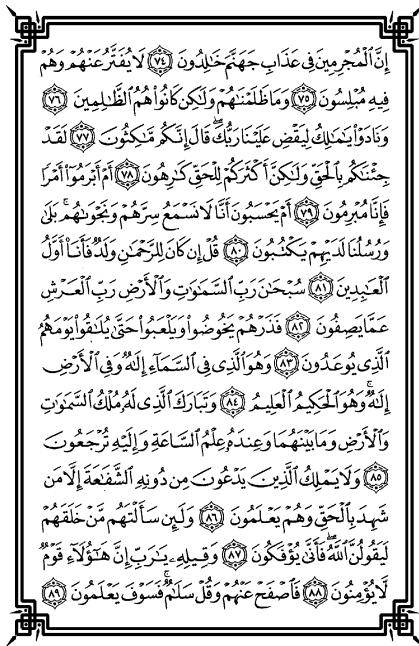 إِنَّ ٱلۡمُجۡرِمِينَ فِي عَذَابِ جَهَنَّمَ خَٰلِدُونَ ٧٤ لَا يُفَتَّرُ عَنۡهُمۡ وَهُمۡ
فِيهِ مُبۡلِسُونَ ٧٥ وَمَا ظَلَمۡنَٰهُمۡ وَلَٰكِن كَانُواْ هُمُ ٱلظَّٰلِمِينَ ٧٦
وَنَادَوۡاْ يَٰمَٰلِكُ لِيَقۡضِ عَلَيۡنَا رَبُّكَۖ قَالَ إِنَّكُم مَّٰكِثُونَ ٧٧ لَقَدۡ
جِئۡنَٰكُم بِٱلۡحَقِّ وَلَٰكِنَّ أَكۡثَرَكُمۡ لِلۡحَقِّ كَٰرِهُونَ ٧٨ أَمۡ أَبۡرَمُوٓاْ أَمۡرٗا
فَإِنَّا مُبۡرِمُونَ ٧٩ أَمۡ يَحۡسَبُونَ أَنَّا لَا نَسۡمَعُ سِرَّهُمۡ وَنَجۡوَىٰهُمۚ بَلَىٰ
وَرُسُلُنَا لَدَيۡهِمۡ يَكۡتُبُونَ ٨٠ قُلۡ إِن كَانَ لِلرَّحۡمَٰنِ وَلَدٞ فَأَنَا۠ أَوَّلُ
ٱلۡعَٰبِدِينَ ٨١ سُبۡحَٰنَ رَبِّ ٱلسَّمَٰوَٰتِ وَٱلۡأَرۡضِ رَبِّ ٱلۡعَرۡشِ
عَمَّا يَصِفُونَ ٨٢ فَذَرۡهُمۡ يَخُوضُواْ وَيَلۡعَبُواْ حَتَّىٰ يُلَٰقُواْ يَوۡمَهُمُ
ٱلَّذِي يُوعَدُونَ ٨٣ وَهُوَ ٱلَّذِي فِي ٱلسَّمَآءِ إِلَٰهٞ وَفِي ٱلۡأَرۡضِ
إِلَٰهٞۚ وَهُوَ ٱلۡحَكِيمُ ٱلۡعَلِيمُ ٨٤ وَتَبَارَكَ ٱلَّذِي لَهُۥ مُلۡكُ ٱلسَّمَٰوَٰتِ
وَٱلۡأَرۡضِ وَمَا بَيۡنَهُمَا وَعِندَهُۥ عِلۡمُ ٱلسَّاعَةِ وَإِلَيۡهِ تُرۡجَعُونَ
٨٥ وَلَا يَمۡلِكُ ٱلَّذِينَ يَدۡعُونَ مِن دُونِهِ ٱلشَّفَٰعَةَ إِلَّا مَن
شَهِدَ بِٱلۡحَقِّ وَهُمۡ يَعۡلَمُونَ ٨٦ وَلَئِن سَأَلۡتَهُم مَّنۡ خَلَقَهُمۡ
لَيَقُولُنَّ ٱللَّهُۖ فَأَنَّىٰ يُؤۡفَكُونَ ٨٧ وَقِيلِهِۦ يَٰرَبِّ إِنَّ هَٰٓؤُلَآءِ قَوۡمٞ
لَّا يُؤۡمِنُونَ ٨٨ فَٱصۡفَحۡ عَنۡهُمۡ وَقُلۡ سَلَٰمٞۚ فَسَوۡفَ يَعۡلَمُونَ ٨٩